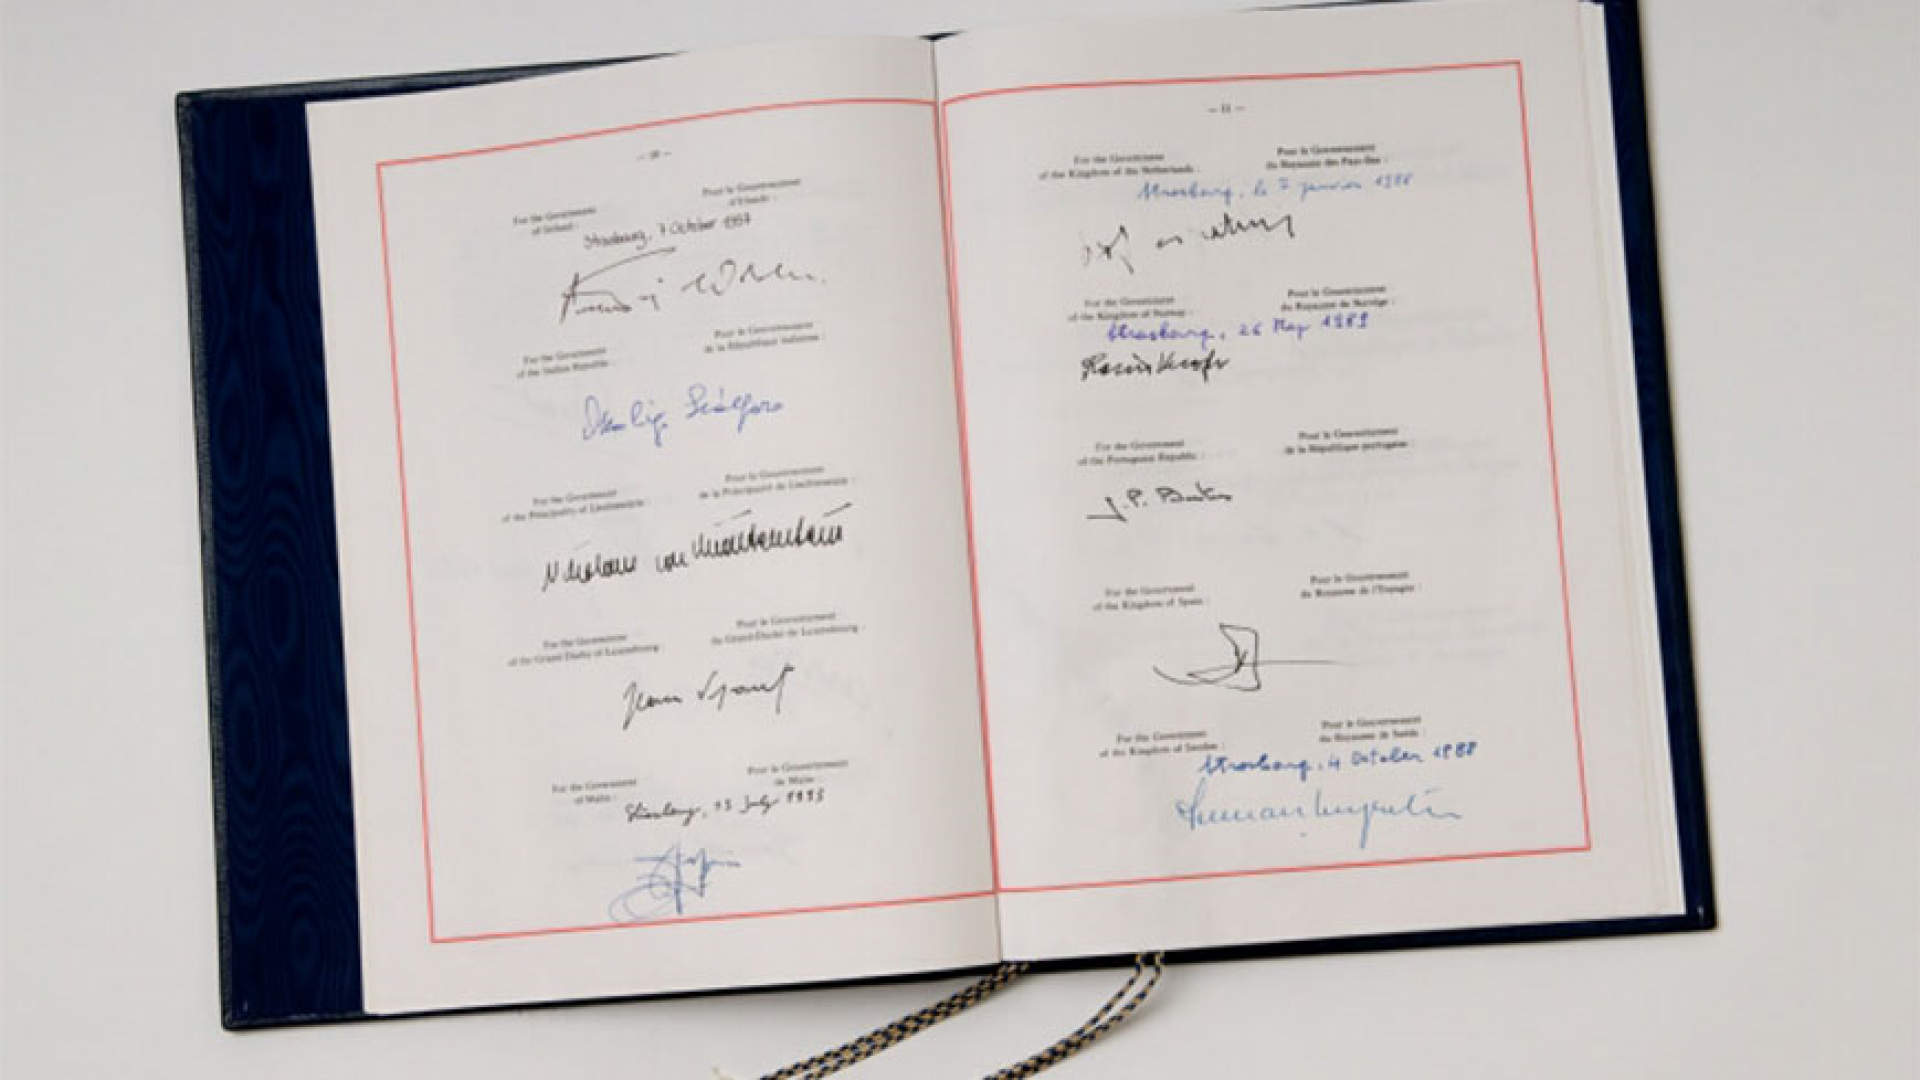 — 10 —
For the Government
of Ireland :
Pour le Gouvernement
d'Irlande :
Strasbourg, 7 October 1997
For the Government
of the Italian Republic :
Pour le Gouvernement
de la République italienne :
For the Government
of the Principality of Liechtenstein :
Pour le Gouvernement
de la Principauté de Liechtenstein :
Nikolaus von Liechtenstein
For the Government
of the Grand Duchy of Luxembourg :
Pour le Gouvernement
du Grand-Duché de Luxembourg :
Jean
For the Government
of Malta :
Pour le Gouvernement
de Malte :
Strasbourg, 13 July 1995
— 11 —
For the Government
of the Kingdom of the Netherlands :
Pour le Gouvernement
du Royaume des Pays-Bas :
Strasbourg, le 7 janvier 1988
For the Government
of the Kingdom of Norway :
Pour le Gouvernement
du Royaume de Norvège :
Strasbourg, 26 May 1989
For the Government
of the Portuguese Republic :
Pour le Gouvernement
de la République portugaise :
J.P.
For the Government
of the Kingdom of Spain :
Pour le Gouvernement
du Royaume de l'Espagne :
For the Government
of the Kingdom of Sweden :
Pour le Gouvernement
du Royaume de Suède :
Strasbourg, 4 October 1988